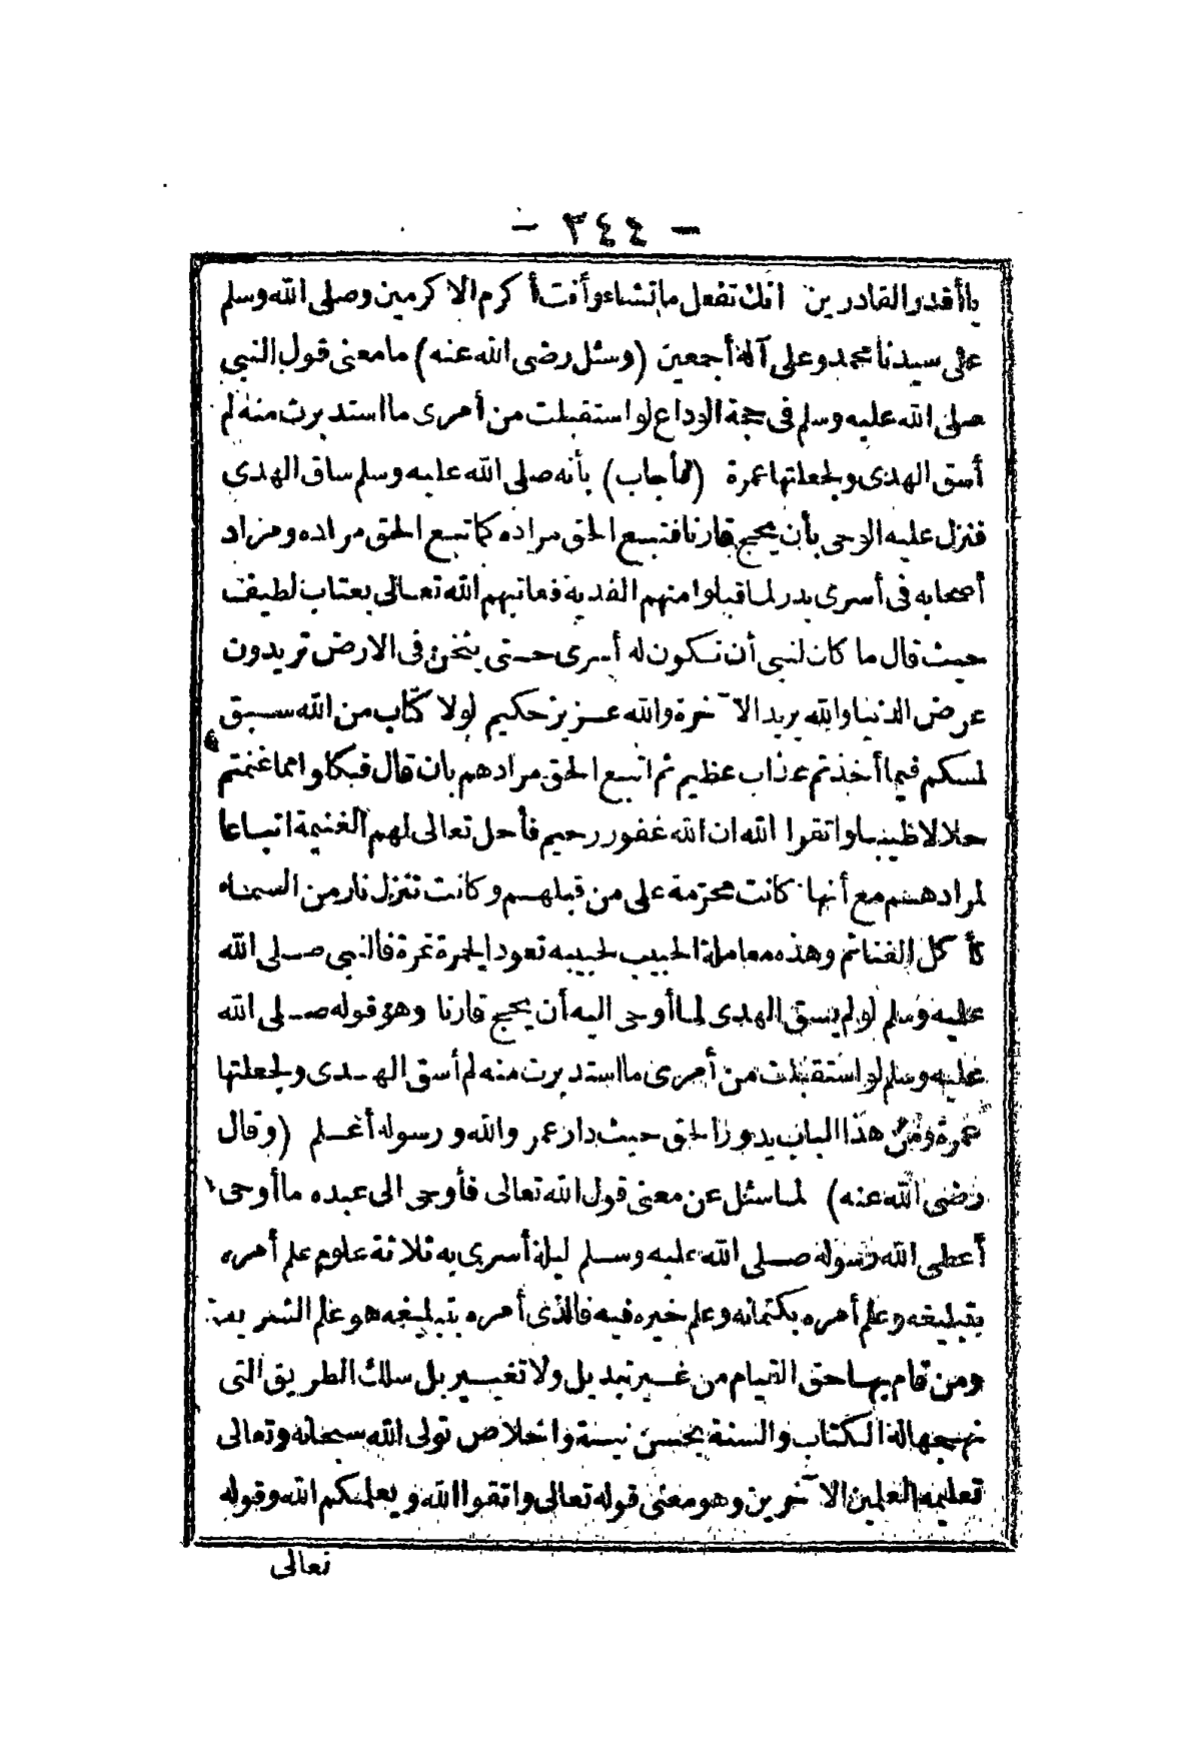 - ٣٤٤ -
يا أقدر القادرين انك تفعل ما تشاء وأنت أكرم الاكرمين وصلى الله وسلم
على سيدنا محمد وعلى آله أجمعين (وسئل رضى الله عنه) ما معنى قول النبي
صلى الله عليه وسلم فى حجة الوداع لو استقبلت من أمرى ما استدبرت منه لم
أسق الهدى ولجعلتها عمرة (فأجاب) بأنه صلى الله عليه وسلم ساق الهدى
فنزل عليه الوحى بأن يحج قارنا فتبع الحق مراده كما تبع الحق مراده ومراد
أصحابه فى أسرى بدر لما قبلوا منهم الفدية فعاتبهم الله تعالى بعتاب لطيف
حيث قال ما كان لنبي أن تكون له أسرى حتى يثخن فى الارض تريدون
عرض الدنيا والله يريد الآخرة والله عزيز حكيم لولا كتاب من الله سبق
لمسكم فيما أخذتم عذاب عظيم ثم اتبع الحق مرادهم بان قال فكلوا مما غنمتم
حلالا طيبا واتقوا الله ان الله غفور رحيم فأحل تعالى لهم الغنيمة اتباعا
لمرادهم مع أنها كانت محرّمة على من قبلهم وكانت تنزل نار من السماء
تأكل الغنائم وهذه معاملة الحبيب لحبيبه تعود الجمرة تمرة فالنبى صلى الله
عليه وسلم لو لم يسق الهدى لما أوحى اليه أن يحج قارنا وهو قوله صلى الله
عليه وسلم لو استقبلت من أمرى ما استدبرت منه لم أسق الهدى ولجعلتها
عمرة ومن هذا الباب يدور الحق حيث دار عمر والله ورسوله أعلم (وقال
رضى الله عنه) لما سئل عن معنى قول الله تعالى فأوحى الى عبده ما أوحى
أعطى الله رسوله صلى الله عليه وسلم ليلة أسرى به ثلاثة علوم علم أمره
بتبليغه وعلم أمره بكتمانه وعلم خيره فيه فالذى أمره بتبليغه هو علم الشريعة
ومن قام بها حق القيام من غير تبديل ولا تغيير بل سلك الطريق التى
نهجها له الكتاب والسنة بحسن نية واخلاص تولى الله سبحانه وتعالى
تعليمه العلمين الآخرين وهو معنى قوله تعالى واتقوا الله ويعلمكم الله وقوله
تعالى